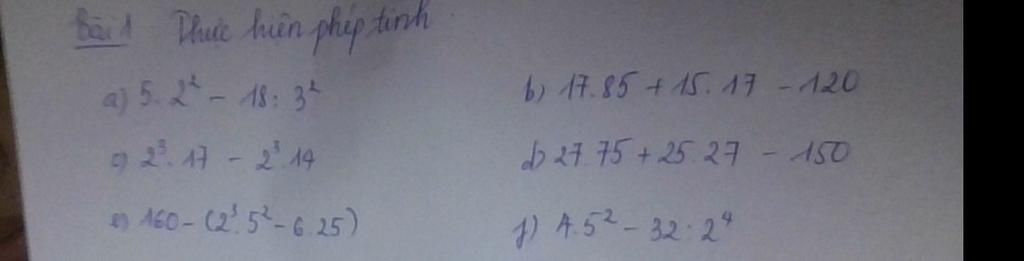 Bài 1 Thực hiện phép tính
a) 5.2² - 18 : 3² b) 17.85 + 15.17 - 120
c) 2³.17 - 2³.14 d) 27.75 + 25.27 - 150
e) 160 - (2³.5² - 6.25) f) 4.5² - 32 : 2⁴